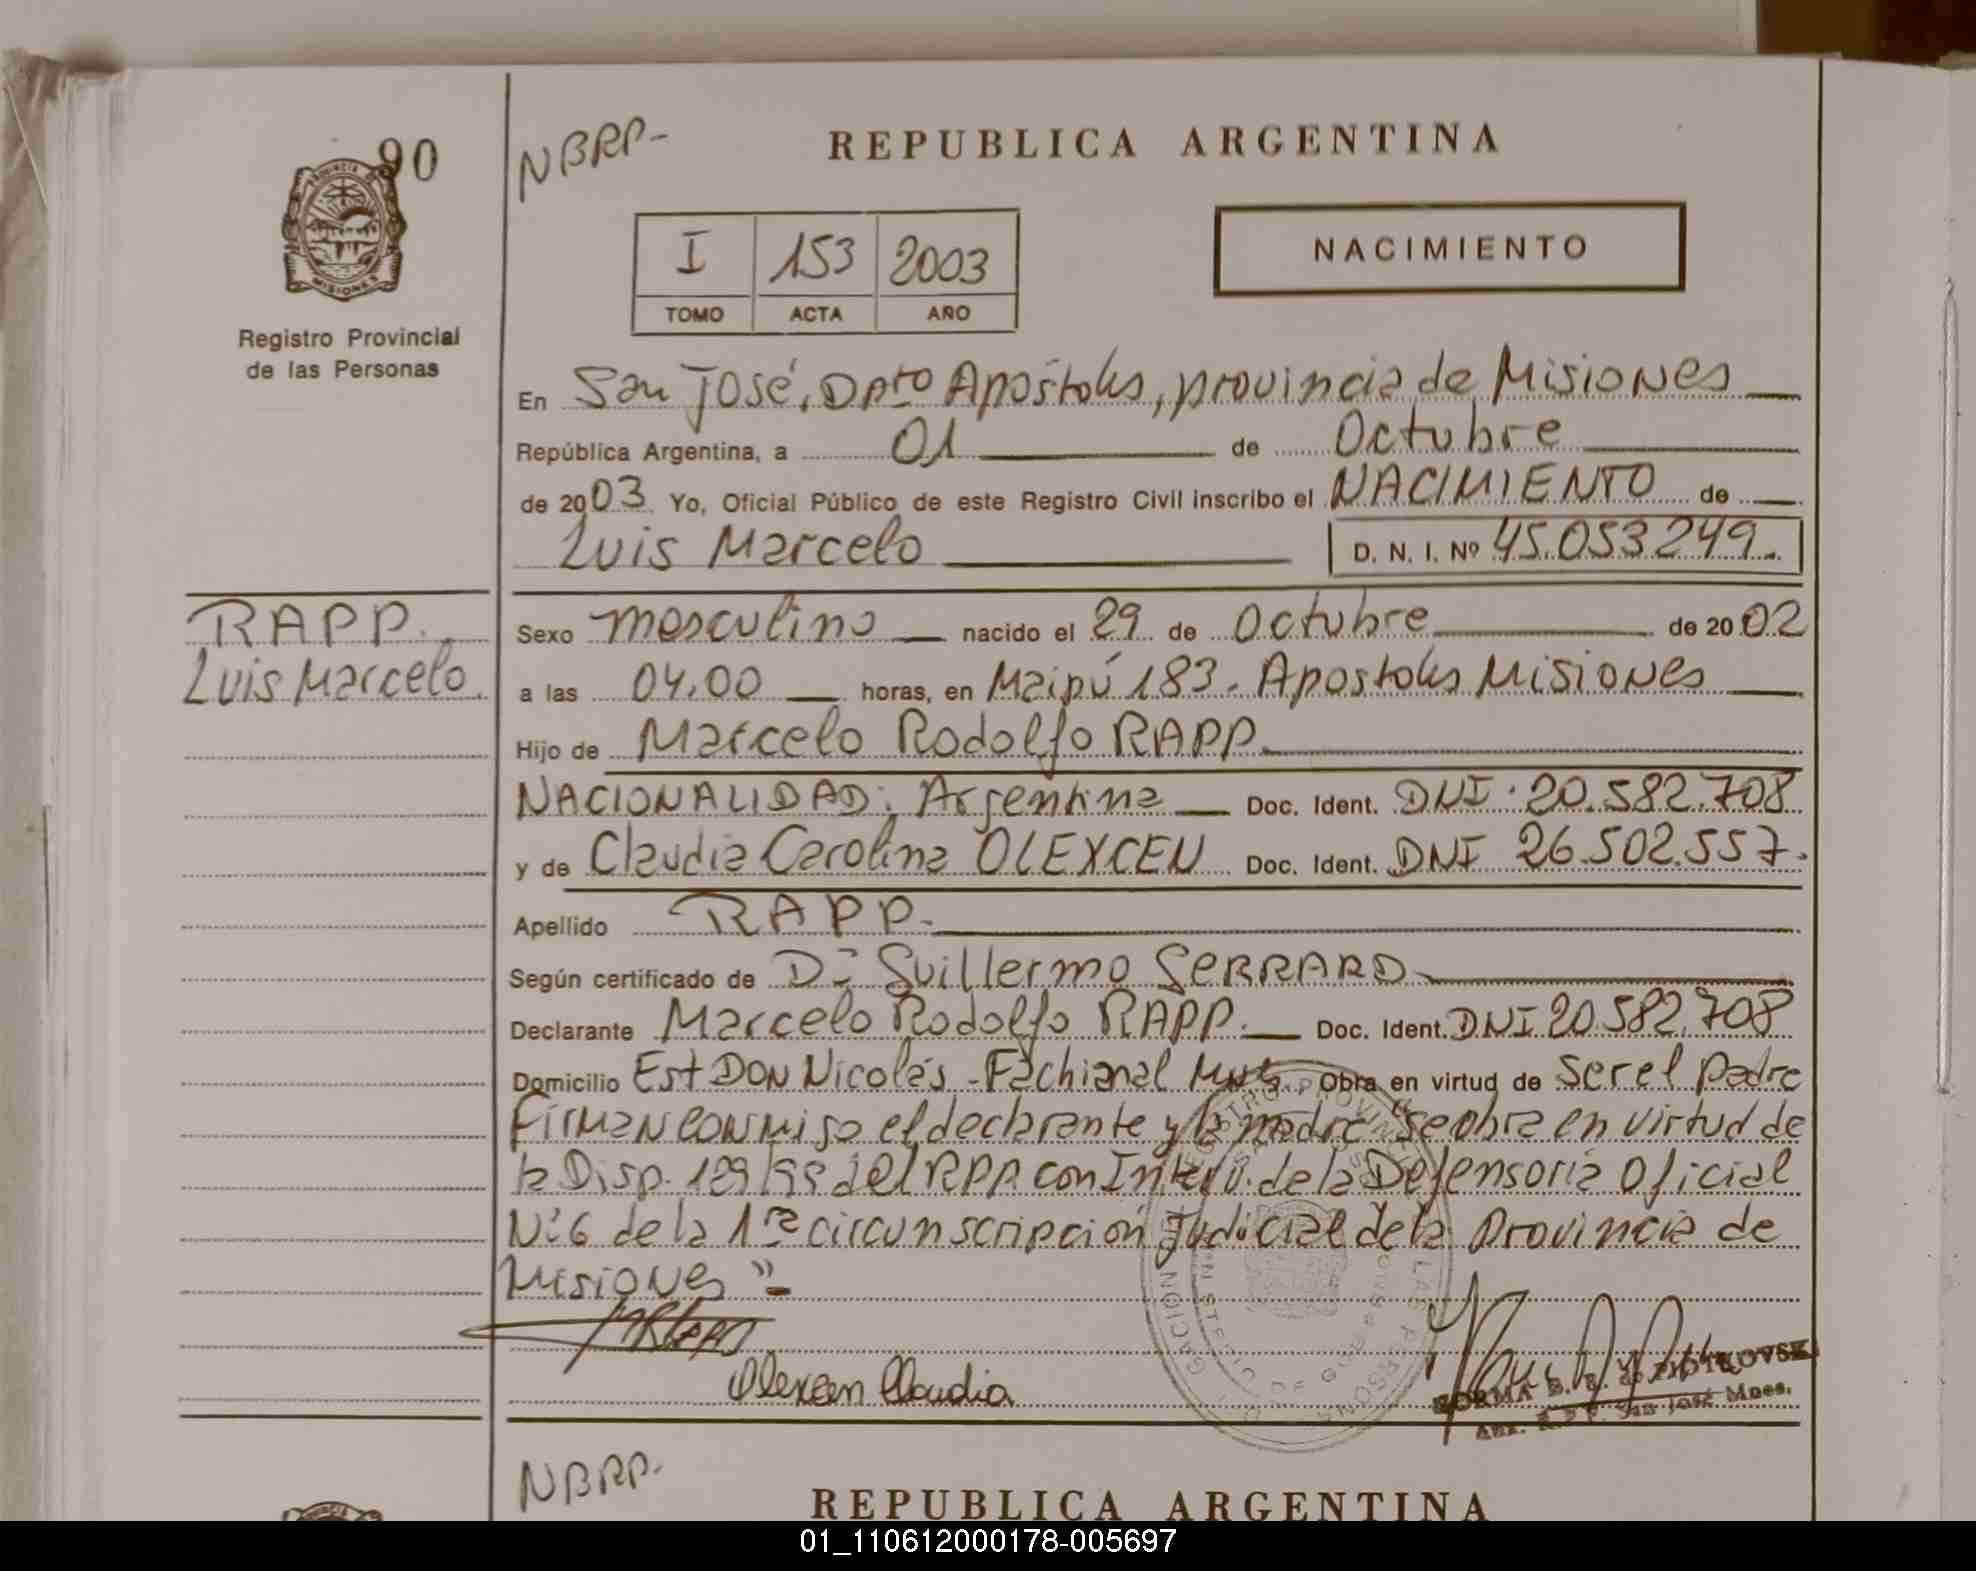 90
NBRP-
REPUBLICA ARGENTINA
PROVINCIA DE
MISIONES
I 153 2003
TOMO ACTA AÑO
NACIMIENTO
Registro Provincial
de las Personas
En San José, Dpto Apóstoles, provincia de Misiones
República Argentina, a 01 de Octubre
de 2003 Yo, Oficial Público de este Registro Civil inscribo el NACIMIENTO de
Luis Marcelo D. N. I. Nº 45.053.249.
RAPP.
Luis Marcelo.
Sexo masculino nacido el 29 de Octubre de 2002
a las 04.00 horas, en Maipú 183. Apostoles Misiones
Hijo de Marcelo Rodolfo RAPP
NACIONALIDAD: Argentina Doc. Ident. DNI 20.582.708
y de Claudia Carolina OLEXCEN Doc. Ident. DNI 26.502.557.
Apellido RAPP.
Según certificado de Dr Guillermo GERRARD
Declarante Marcelo Rodolfo RAPP. Doc. Ident. DNI 20.582.708
Domicilio Est DON Nicolás - Fachinal Obra en virtud de ser el padre
Firman conmigo el declarante y la madre "se obra en virtud de
la Disp. 129/99 del RPP. con Interv. de la Defensoría Oficial
Nº 6 de la 1ra circunscripción Judicial de la Provincia de
Misiones"
Olexcen Claudia
NORMA B. B. de PIOTROVSKI
Aux. R.P.P. San José Mnes.
NBRP.
REPUBLICA ARGENTINA
01_110612000178-005697